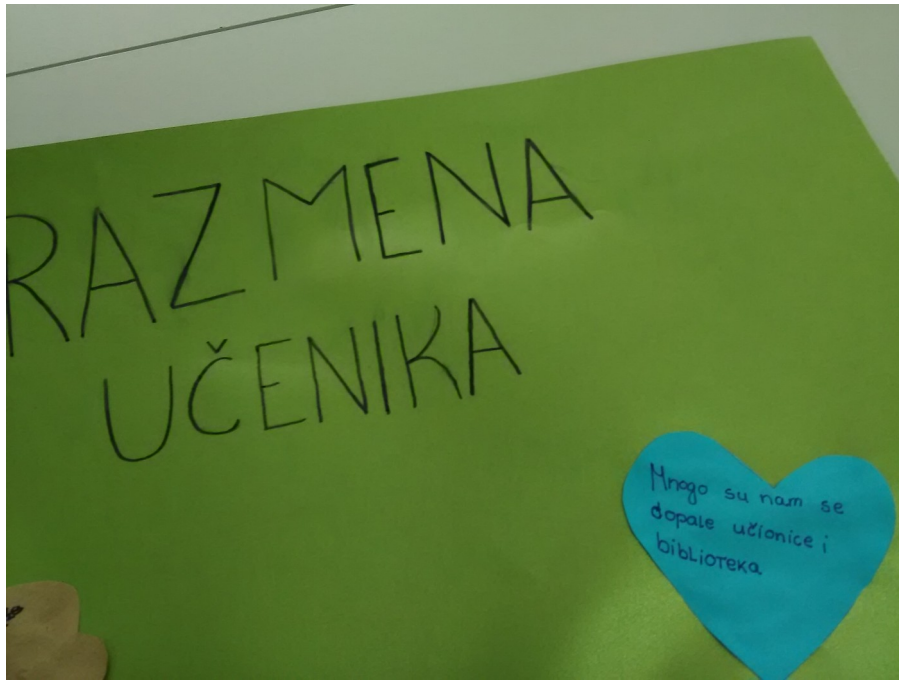 RAZMENA
UČENIKA
Mnogo su nam se
dopale učionice i
biblioteka